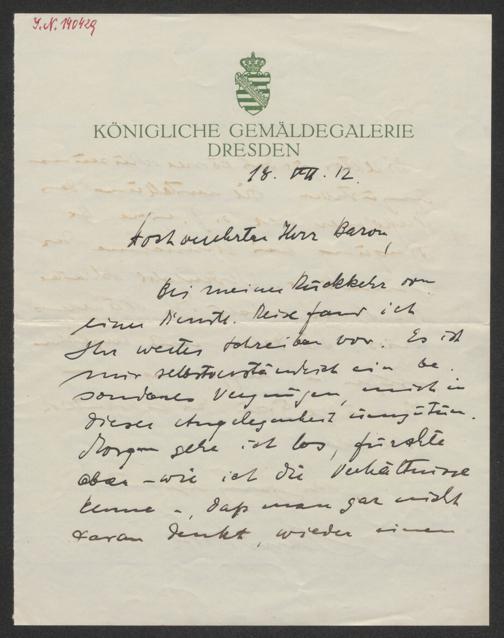 J.N. 140429
KÖNIGLICHE GEMÄLDEGALERIE
DRESDEN
18. VII. 12.
Hochverehrter Herr Baron,
Bei meiner Rückkehr von
einer Dienst-Reise fand ich
Ihr wertes Schreiben vor. Es ist
mir selbstverständlich ein be-
sonderes Vergnügen, mich in
dieser Angelegenheit
Morgen gehe ich los, fürchte
aber – wie ich die Verhältnisse
kenne –, daß man gar nicht
daran denkt, wieder einen